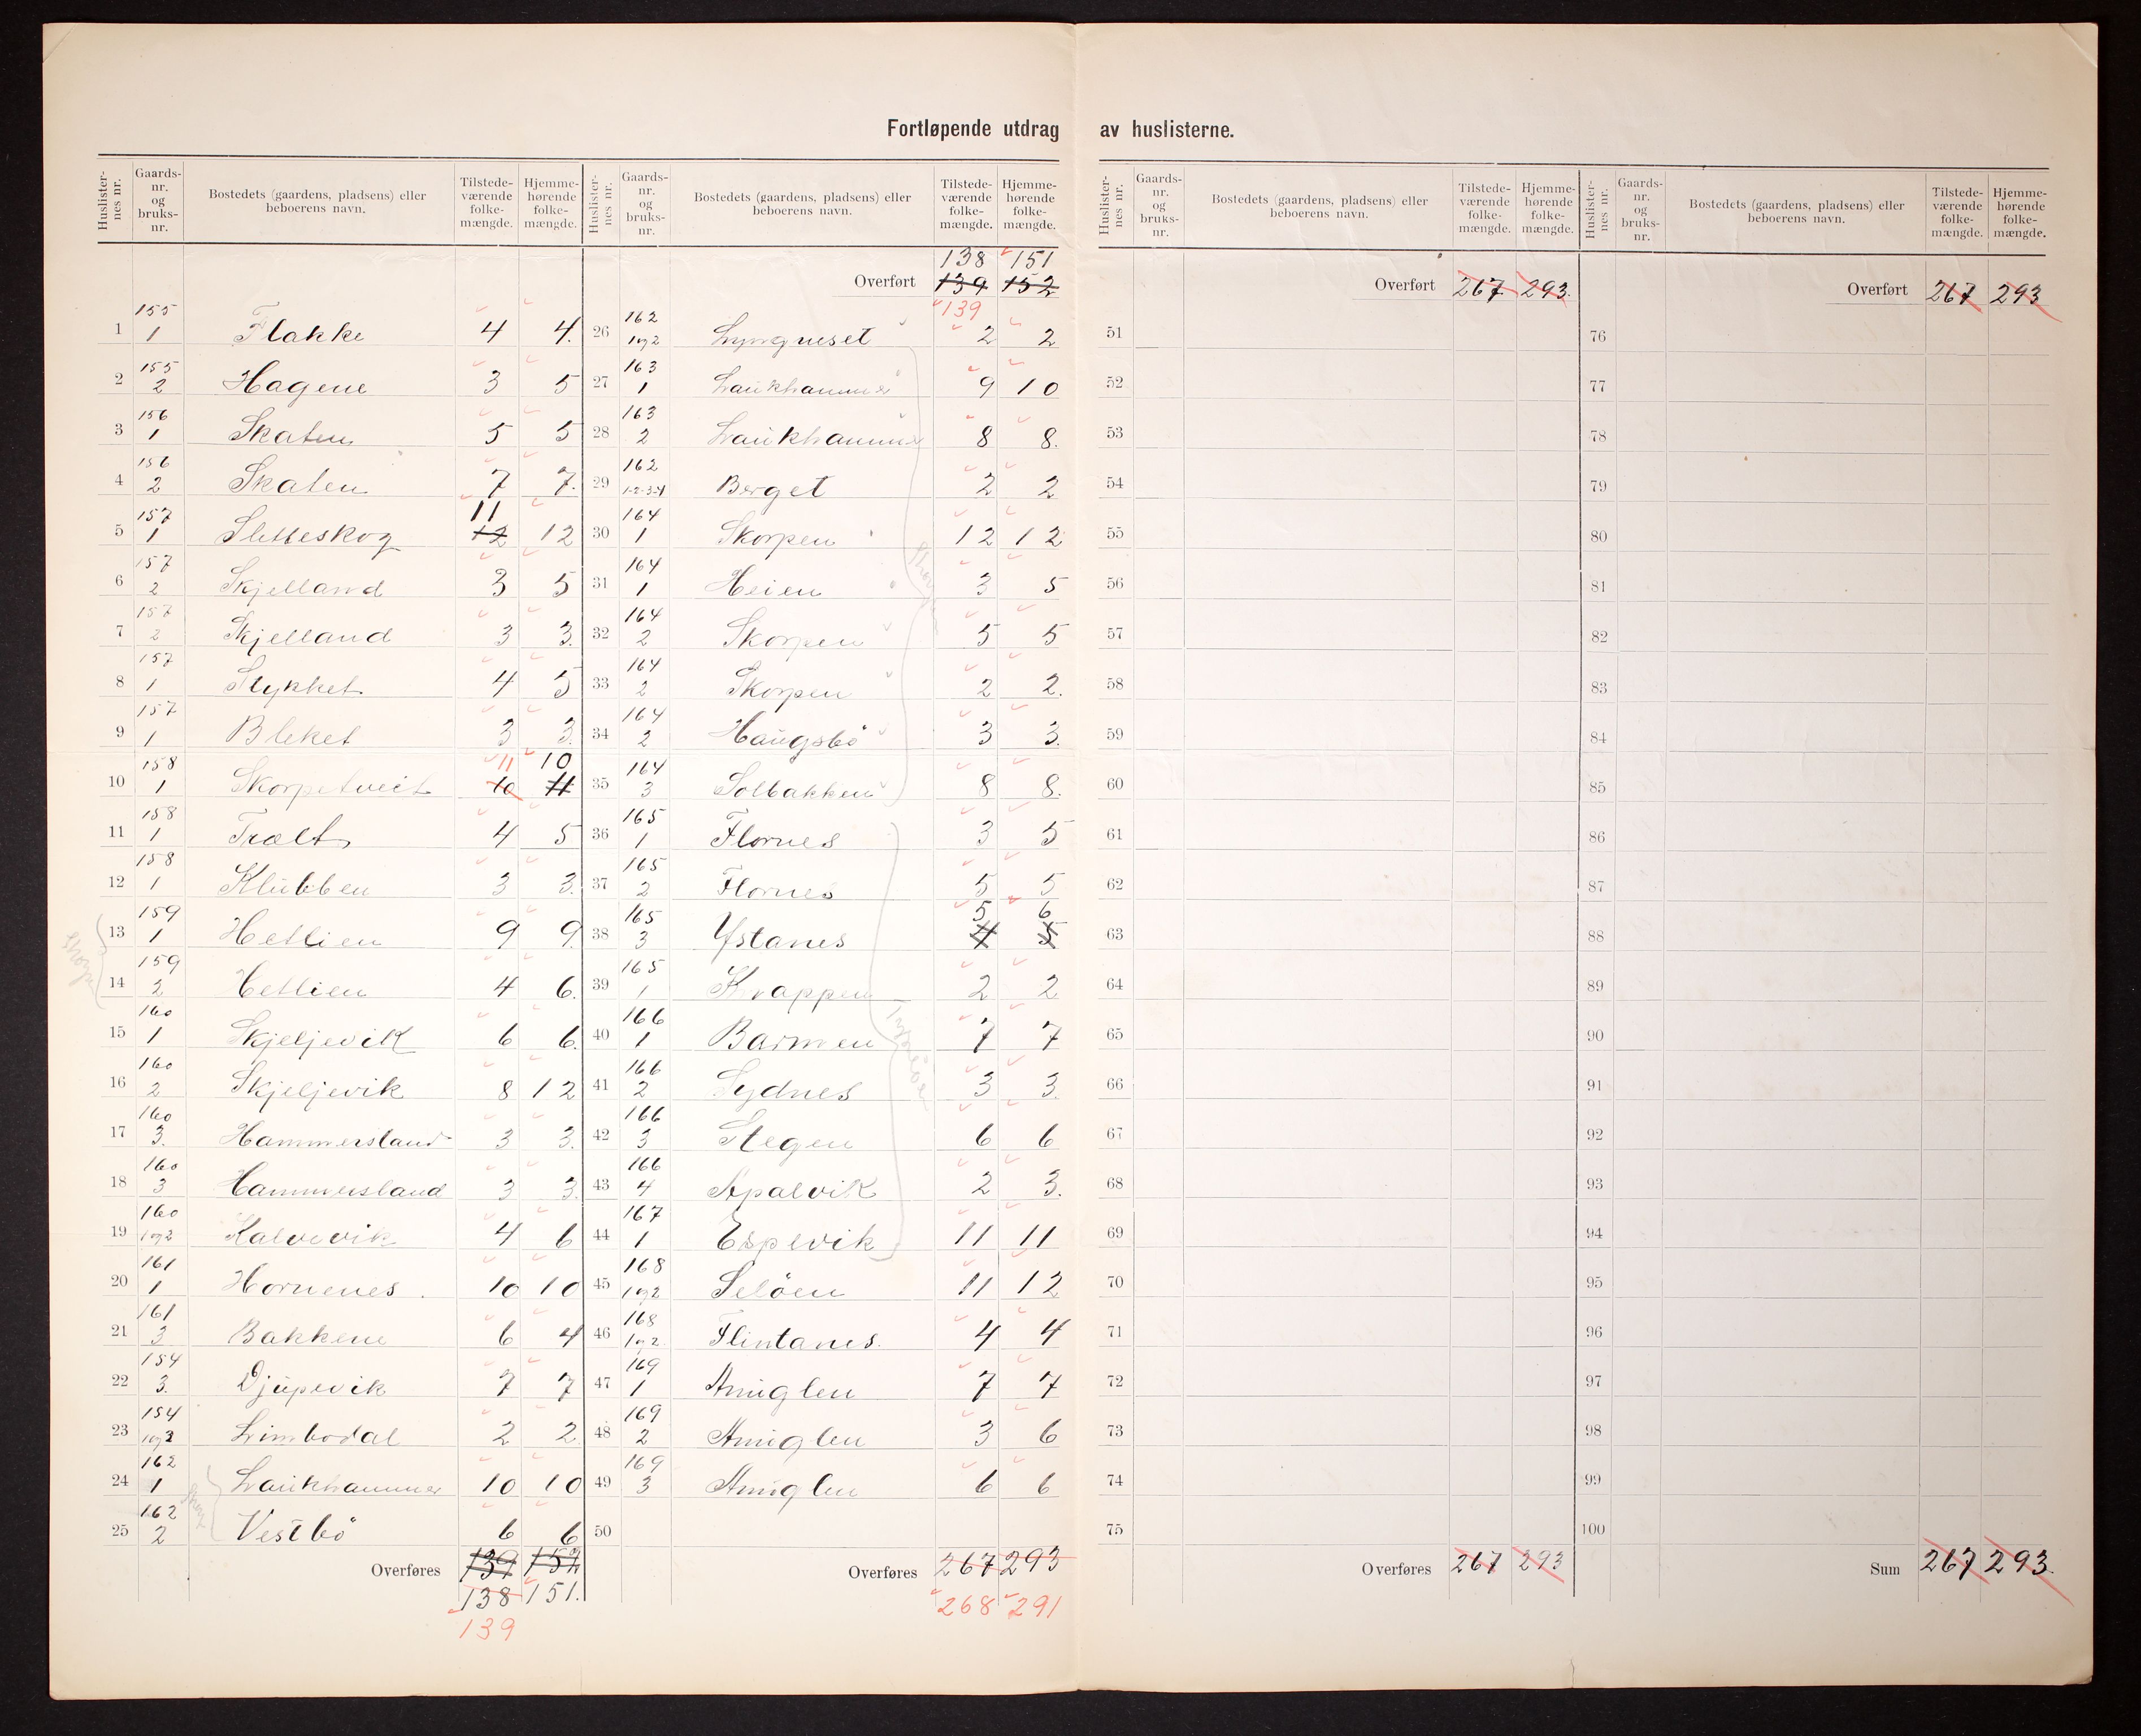 Fortløpende utdrag av huslisterne.
Huslister-nes nr. Gaards-nr. og bruks-nr. Bostedets (gaardens, pladsens) eller beboerens navn. Tilstede-værende folke-mængde. Hjemme-hørende folke-mængde.
1 155 1 Flakke 4 4.
2 155 2 Hagene 3 5
3 156 1 Skaten 5 5
4 156 2 Skaten 7 7.
5 157 1 Sletteskog 11 12 12
6 157 2 Skjelland 3 5
7 157 2 Skjelland 3 3.
8 157 1 Stykket 4 5
9 157 1 Bleket 3 3.
10 158 1 Skorpetveit 11 10 10 11
11 158 1 Trælt 4 5
12 158 1 Klubben 3 3.
13 159 1 Hetlien 9 9.
14 159 2 Hetlien 4 6.
15 160 1 Skjeljevik 6 6.
16 160 2 Skjeljevik 8 12
17 160 3. Hammersland 3 3.
18 160 3 Hammersland 3 3.
19 160 1og2 Kalvevik 4 6
20 161 1 Hornenes. 10 10
21 161 3 Bakkene 6 4
22 154 3. Djupevik 7 7
23 154 Limbodal 2 2
24 162 1 Laukhammer 10 10
25 162 2 Vestbö 6 6
Overføres 139 152
138 151.
139
Huslister-nes nr. Gaards-nr. og bruks-nr. Bostedets (gaardens, pladsens) eller beboerens navn. Tilstede-værende folke-mængde. Hjemme-hørende folke-mængde.
138 151
Overført 139 152
139
26 162 1og2 Lyngneset 2 2
27 163 1 Laukhammer 9 10
28 163 2 Laukhammer 8 8.
29 162 1-2-3-4 Berget 2 2
30 164 1 Skorpen 12 12
31 164 1 Heien 3 5
32 164 2 Skorpen 5 5
33 164 2 Skorpen 2 2.
34 164 2 Haugsbö 3 3.
35 164 3 Solbakken 8 8.
36 165 1 Flornes 3 5
37 165 2 Flornes 5 5
38 165 3 Ystanes 5 6 4 5
39 165 1 Knappen 2 2
40 166 1 Barmen 7 7
41 166 2 Sydnes 3 3.
42 166 3 Stegen 6 6
43 166 4 Apalvik 2 3.
44 167 1 Espevik 11 11
45 168 1og2 Selöen 11 12
46 168 1og2. Flintanes. 4 4
47 169 1 Anuglen 7 7
48 169 2 Anuglen 3 6
49 169 3 Anuglen 6 6
50
Overføres 267 293
268 291
Huslister-nes nr. Gaards-nr. og bruks-nr. Bostedets (gaardens, pladsens) eller beboerens navn. Tilstede-værende folke-mængde. Hjemme-hørende folke-mængde.
Overført 267 293.
51
52
53
54
55
56
57
58
59
60
61
62
63
64
65
66
67
68
69
70
71
72
73
74
75
Overføres 267 293
Huslister-nes nr. Gaards-nr. og bruks-nr. Bostedets (gaardens, pladsens) eller beboerens navn. Tilstede-værende folke-mængde. Hjemme-hørende folke-mængde.
Overført 267 293
76
77
78
79
80
81
82
83
84
85
86
87
88
89
90
91
92
93
94
95
96
97
98
99
100
Sum 267 293.